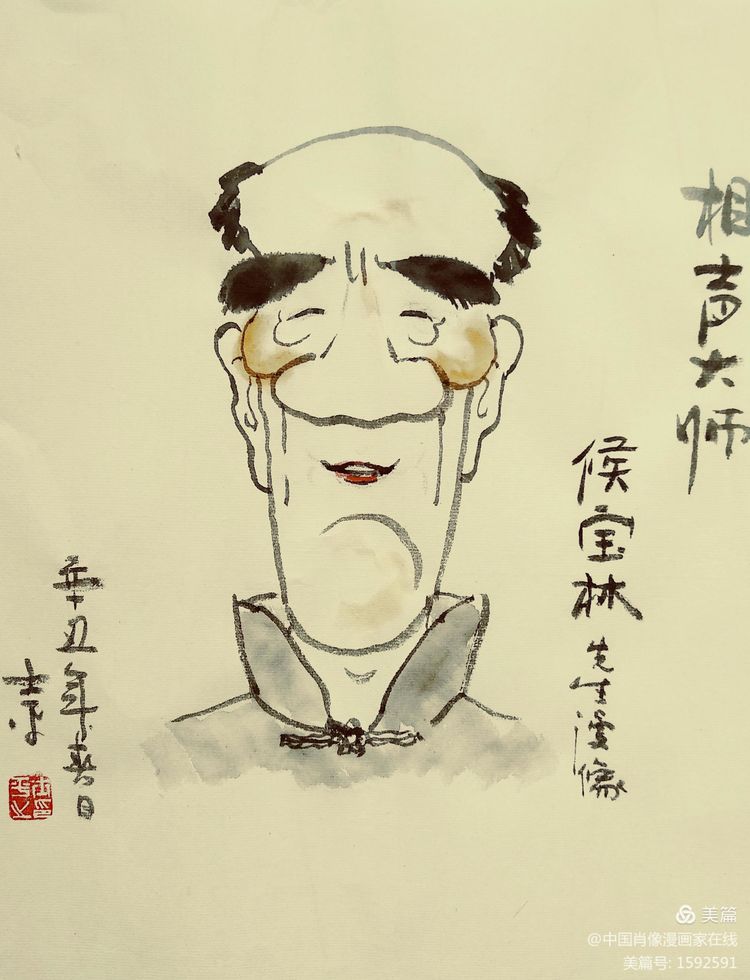 相声大师
候宝林
先生漫像
辛丑年春日
美篇
@中国肖像漫画家在线
美篇号: 1592591